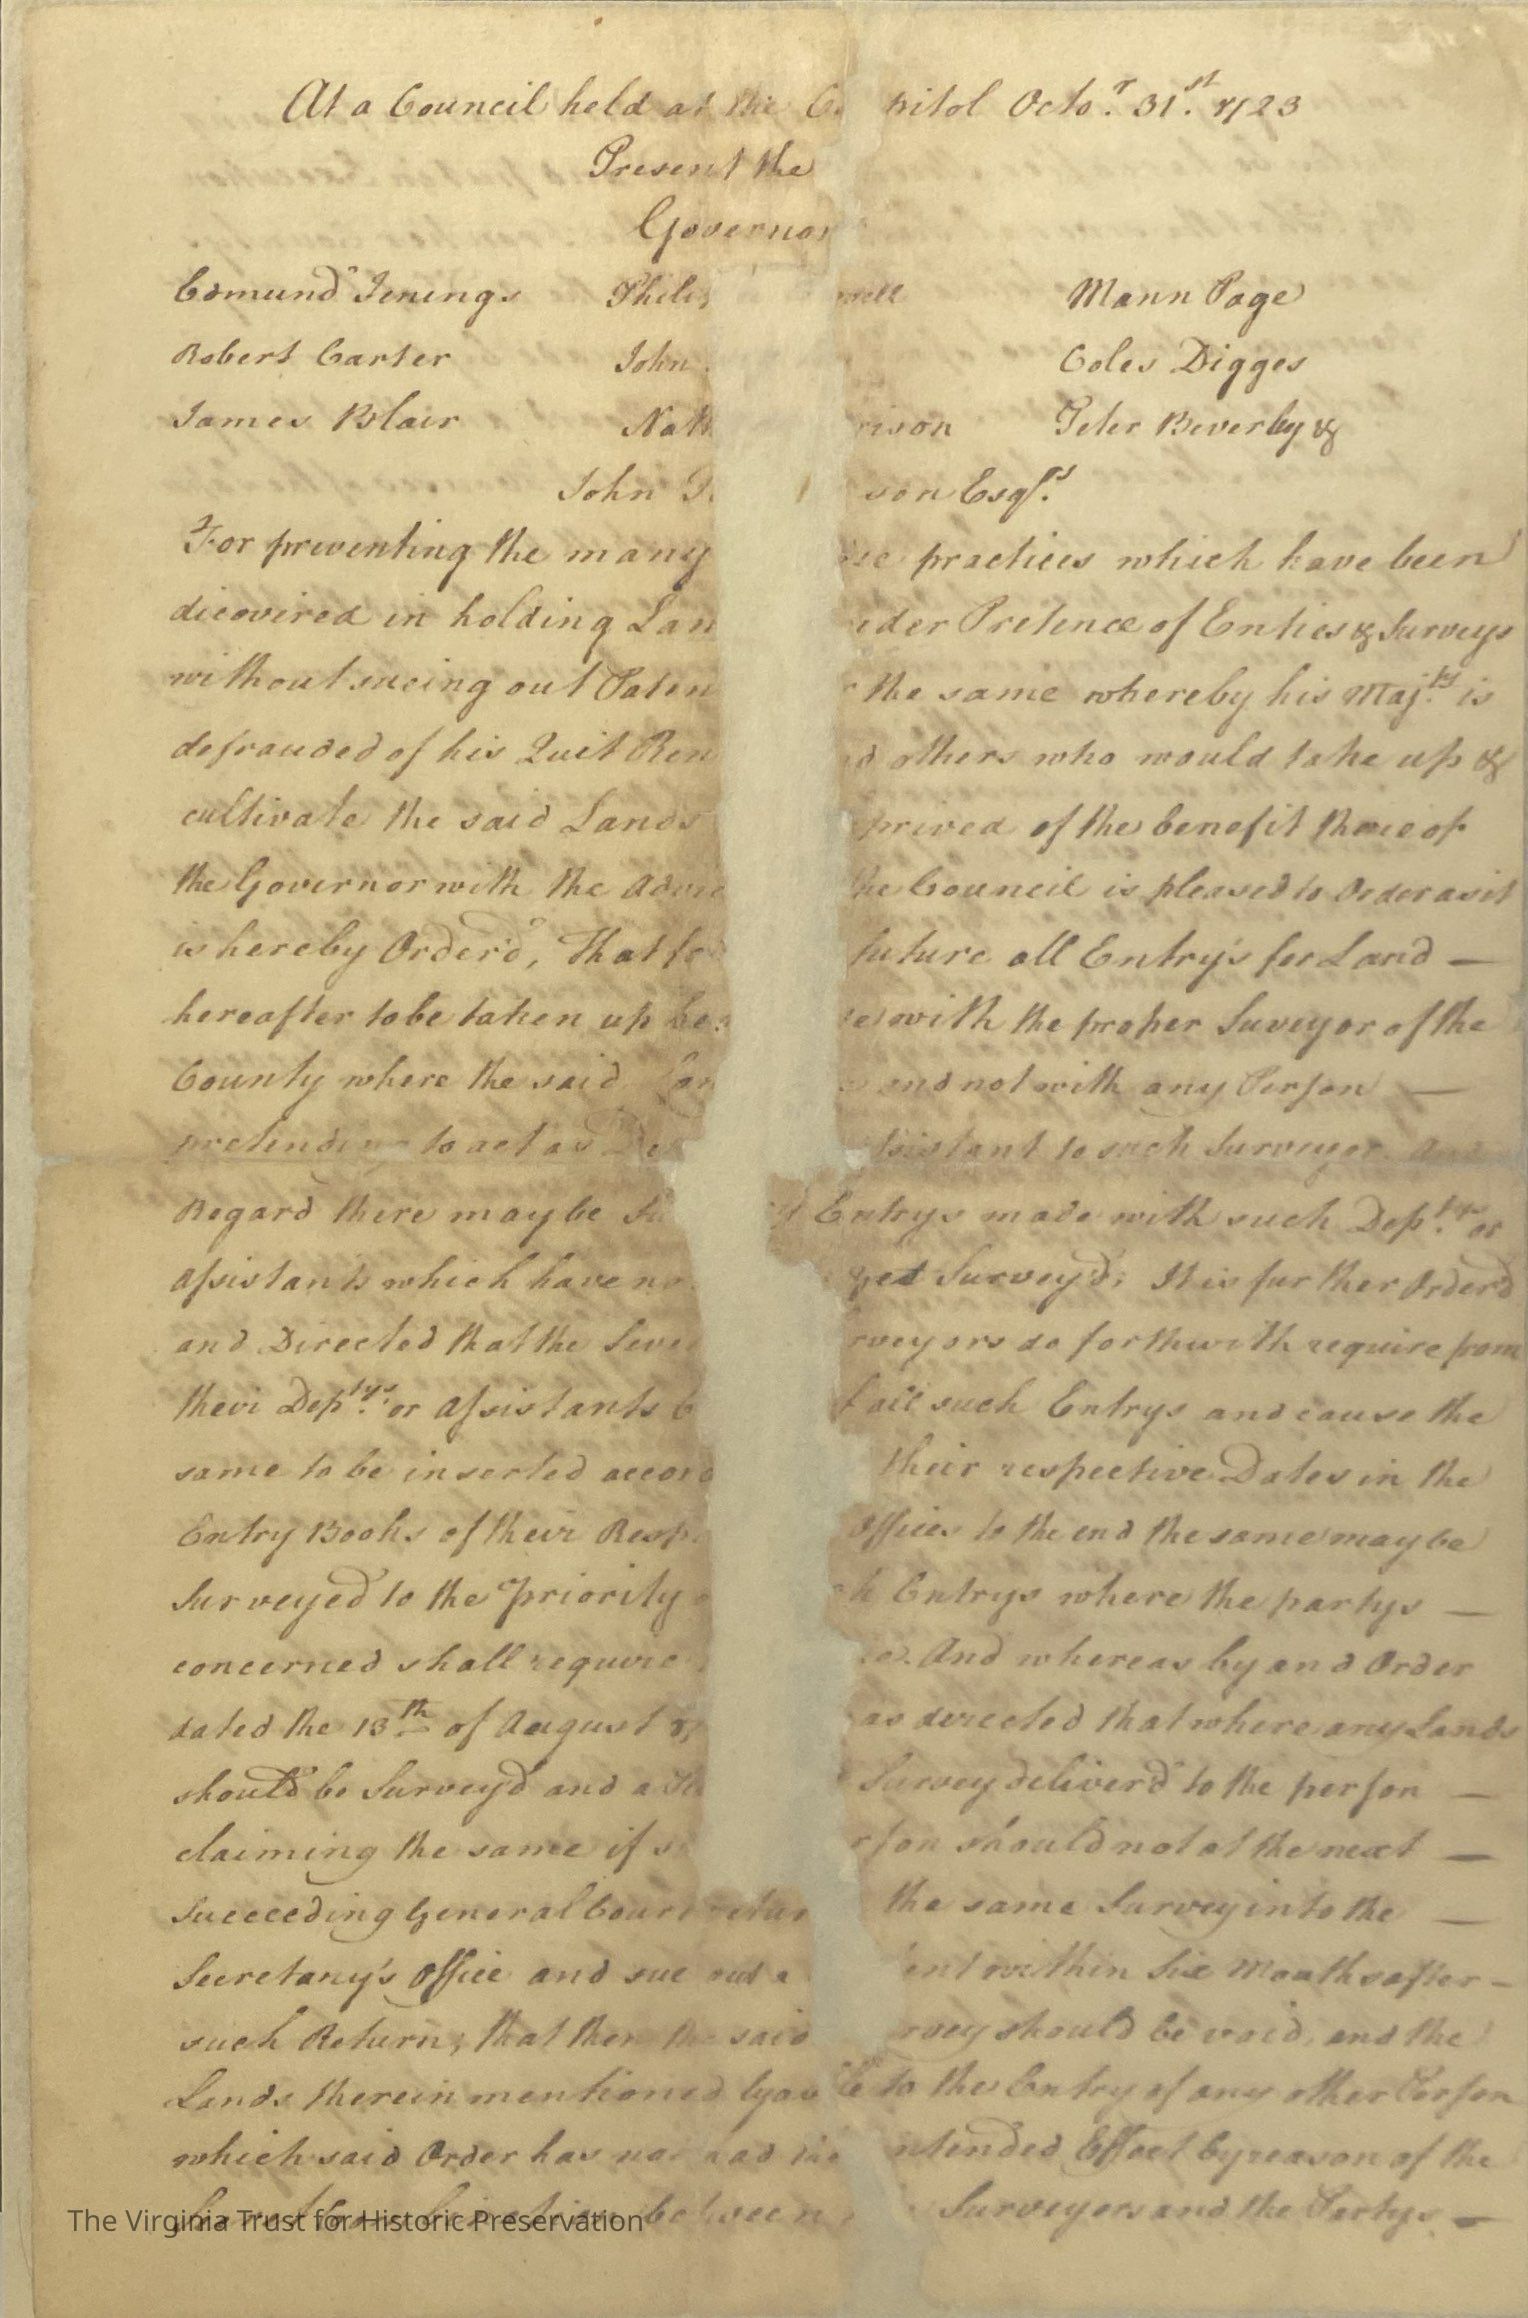 At a Council held at the Ca pitol Octo.r 31.st 1723
Present the
Governor
Edmund Jenings Philip well Mann Page
Robert Carter John Coles Digges
James Blair Nath rison Peter Beverley &
John R son Esqr.s
For preventing the many practices which have been
dicovired in holding Lan nder Pretence of Enties & Surveys
without sueing out Paten the same whereby his Maj.ty is
defrauded of his Quit Ren d others who would take up &
cultivate the said Lands prived of the benefit thereof
the Governor with the Advice the Council is pleased to Order as it
is hereby Order'd, That for future all Entry's for Land —
hereafter to be taken up be with the proper Suveyor of the
County where the said Lan and not with any Person —
pretending to act as De ssistant to such Surveyor And
Regard there may be Entrys made with such Dep.tys or
Assistants which have no yet Survey'd; It is further Order'd
and Directed that the Seve rveyors do forthwith require from
thevi Dep.tys or Assistants all such Entrys and cause the
same to be inserted accord their respective Dates in the
Entry Books of their Resp Offices to the end the same may be
Surveyed to the Priority h Entrys where the partys —
concerned shall require And whereas by and Order
dated the 13th of August as directed that where any Lands
should be Survey'd and a Survey deliver'd to the person —
claiming the same if s rson should not at the next —
Succeeding General Court retur the same Survey into the —
Secretany's Office and sue out a ent within Six Months after —
such Return, that then the said rvey should be void, and the
Lands therein mentioned lyable to the Entry of any other Person
which said Order has not had the ntended Effect by reason of the
between Surveyors and the Partys —
The Virginia Trust for Historic Preservation